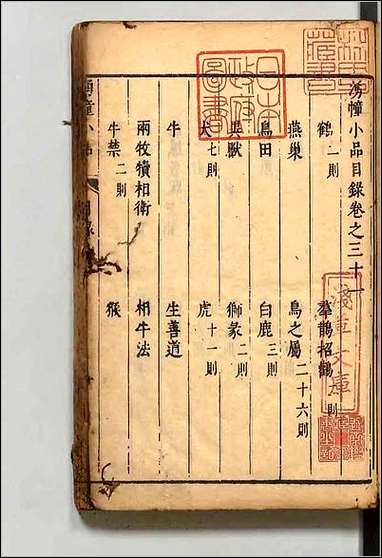 湧幢小品目錄卷之三十一
鶴一則
羣鵲招鸛一則
燕巢
鳥之屬二十六則
鳥田
白鹿三則
異獸
獅彖二則
犬七則
虎十一則
牛
生善道
兩牧犢相衛
相牛法
牛禁二則
猴
日本
政府
圖書
淺草文庫